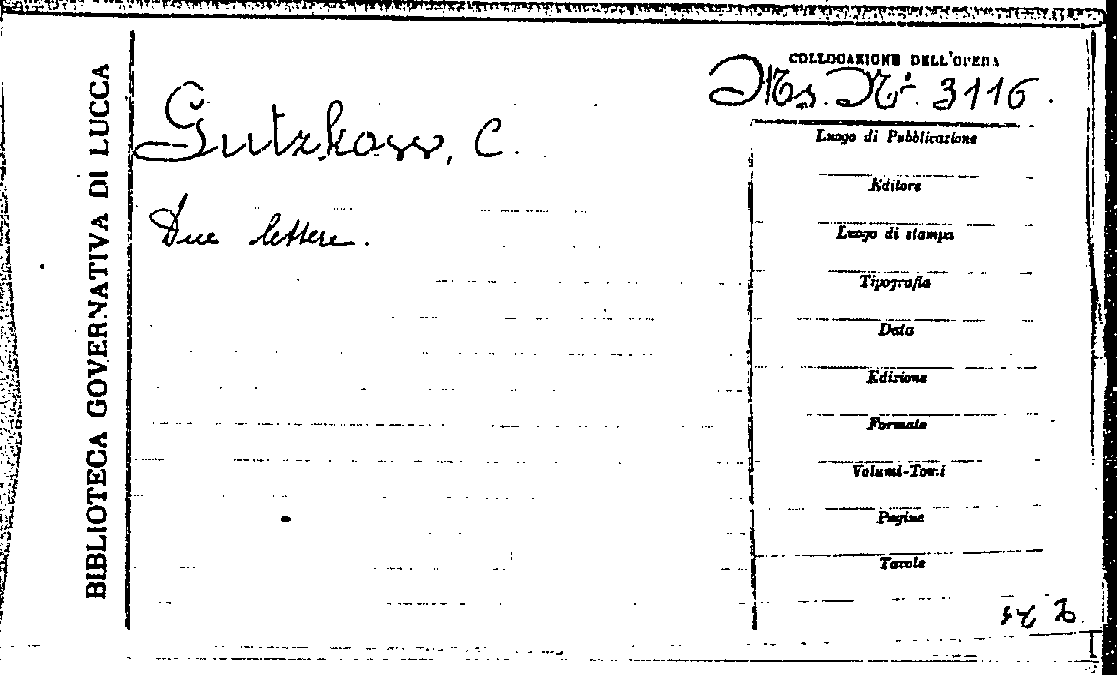 BIBLIOTECA GOVERNATIVA DI LUCCA
COLLOCAZIONE DELL'OPERA
Ms. N.º 3116.
Gutzkow, C.
Due lettere.
Luogo di Pubblicazione
Editore
Luogo di stampa
Tipografia
Data
Edizione
Formato
Volumi-Tomi
Pagine
Tavole